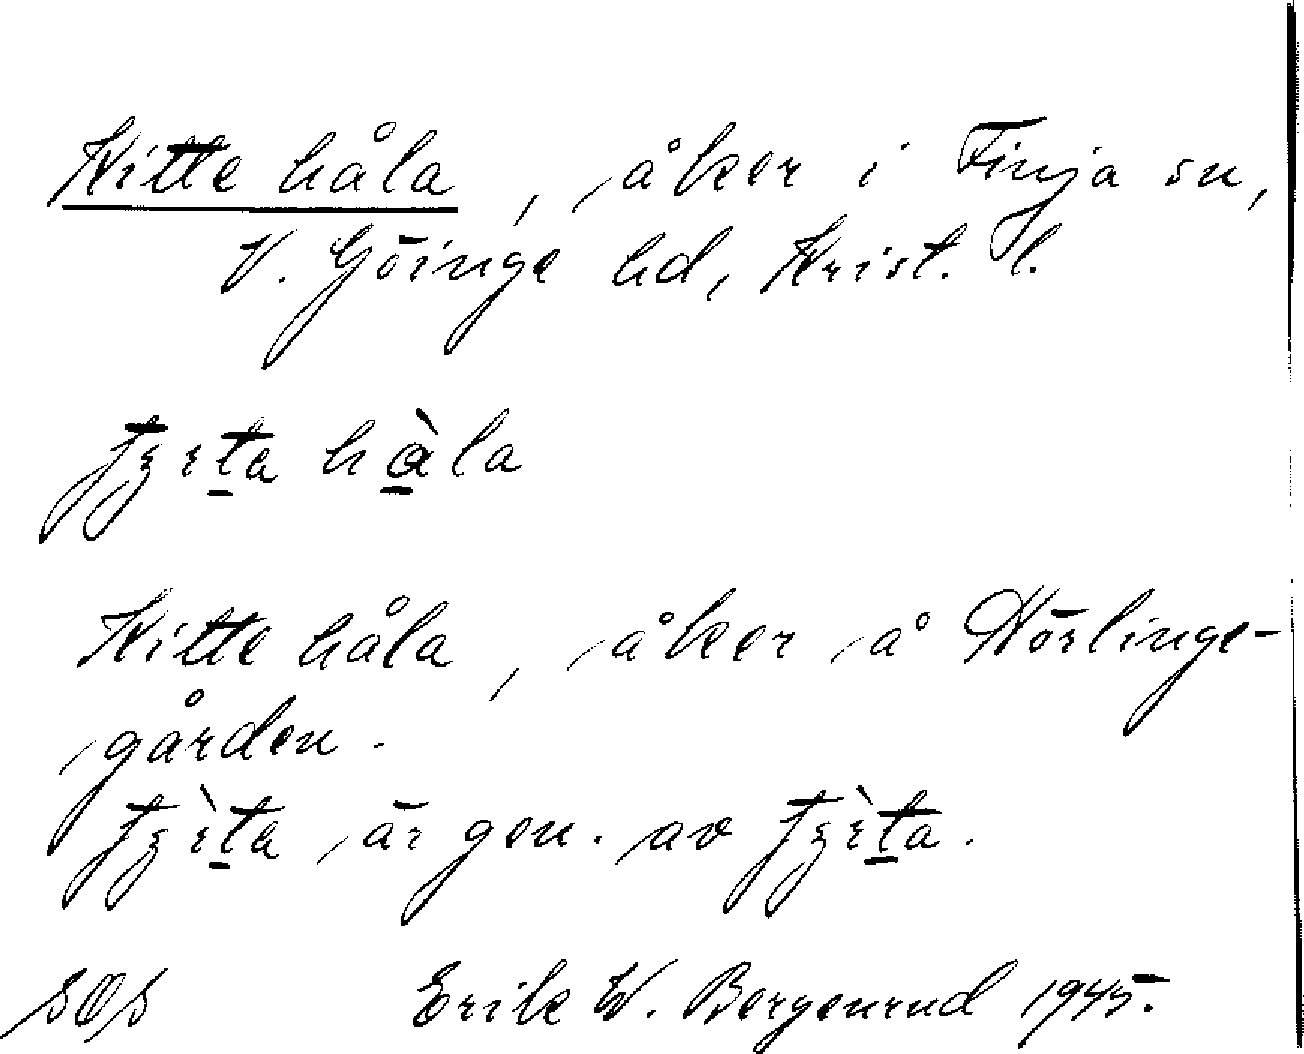 Kitte håla, åker i Finja sn,
V. Göinge hd, Krist. l.
håla
Kitte håla, åker å Hörlinge-
gården.
är gen. av
SOS Erik W. Bergenrud 1945.